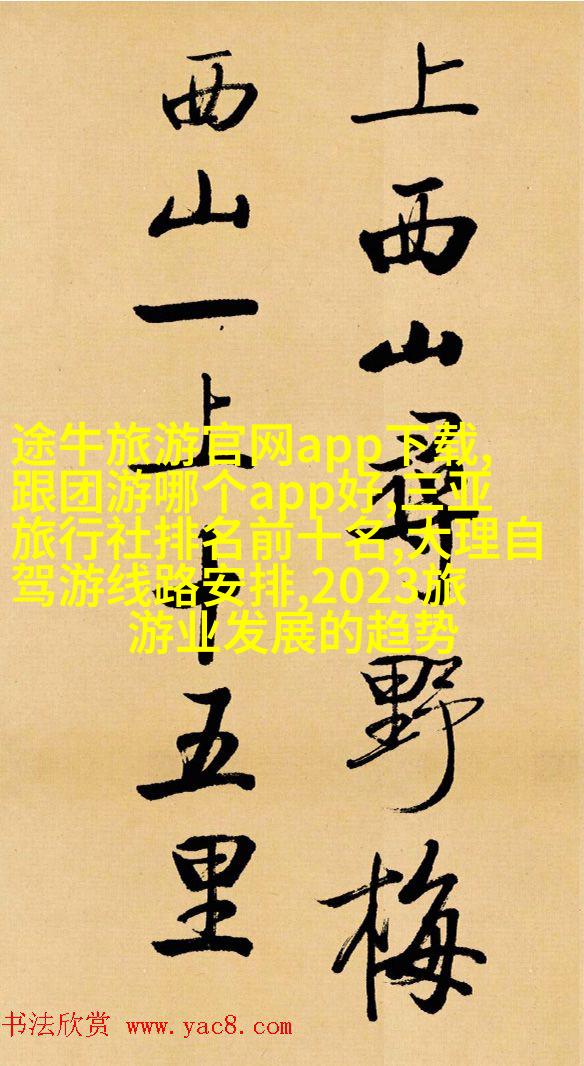 上西山尋野梅
西山一上十五里
途牛旅游官网app下载,
跟团游哪个app好,三亚
旅行社排名前十名,大理自
驾游线路安排,2023旅
游业发展的趋势
书法欣赏 www.yac8.com